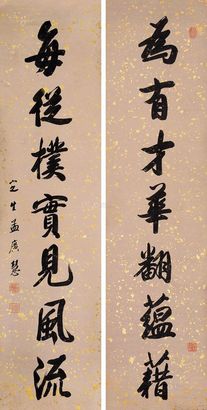 為有才華翻蘊藉
每從樸實見風流
定生孟廣慧